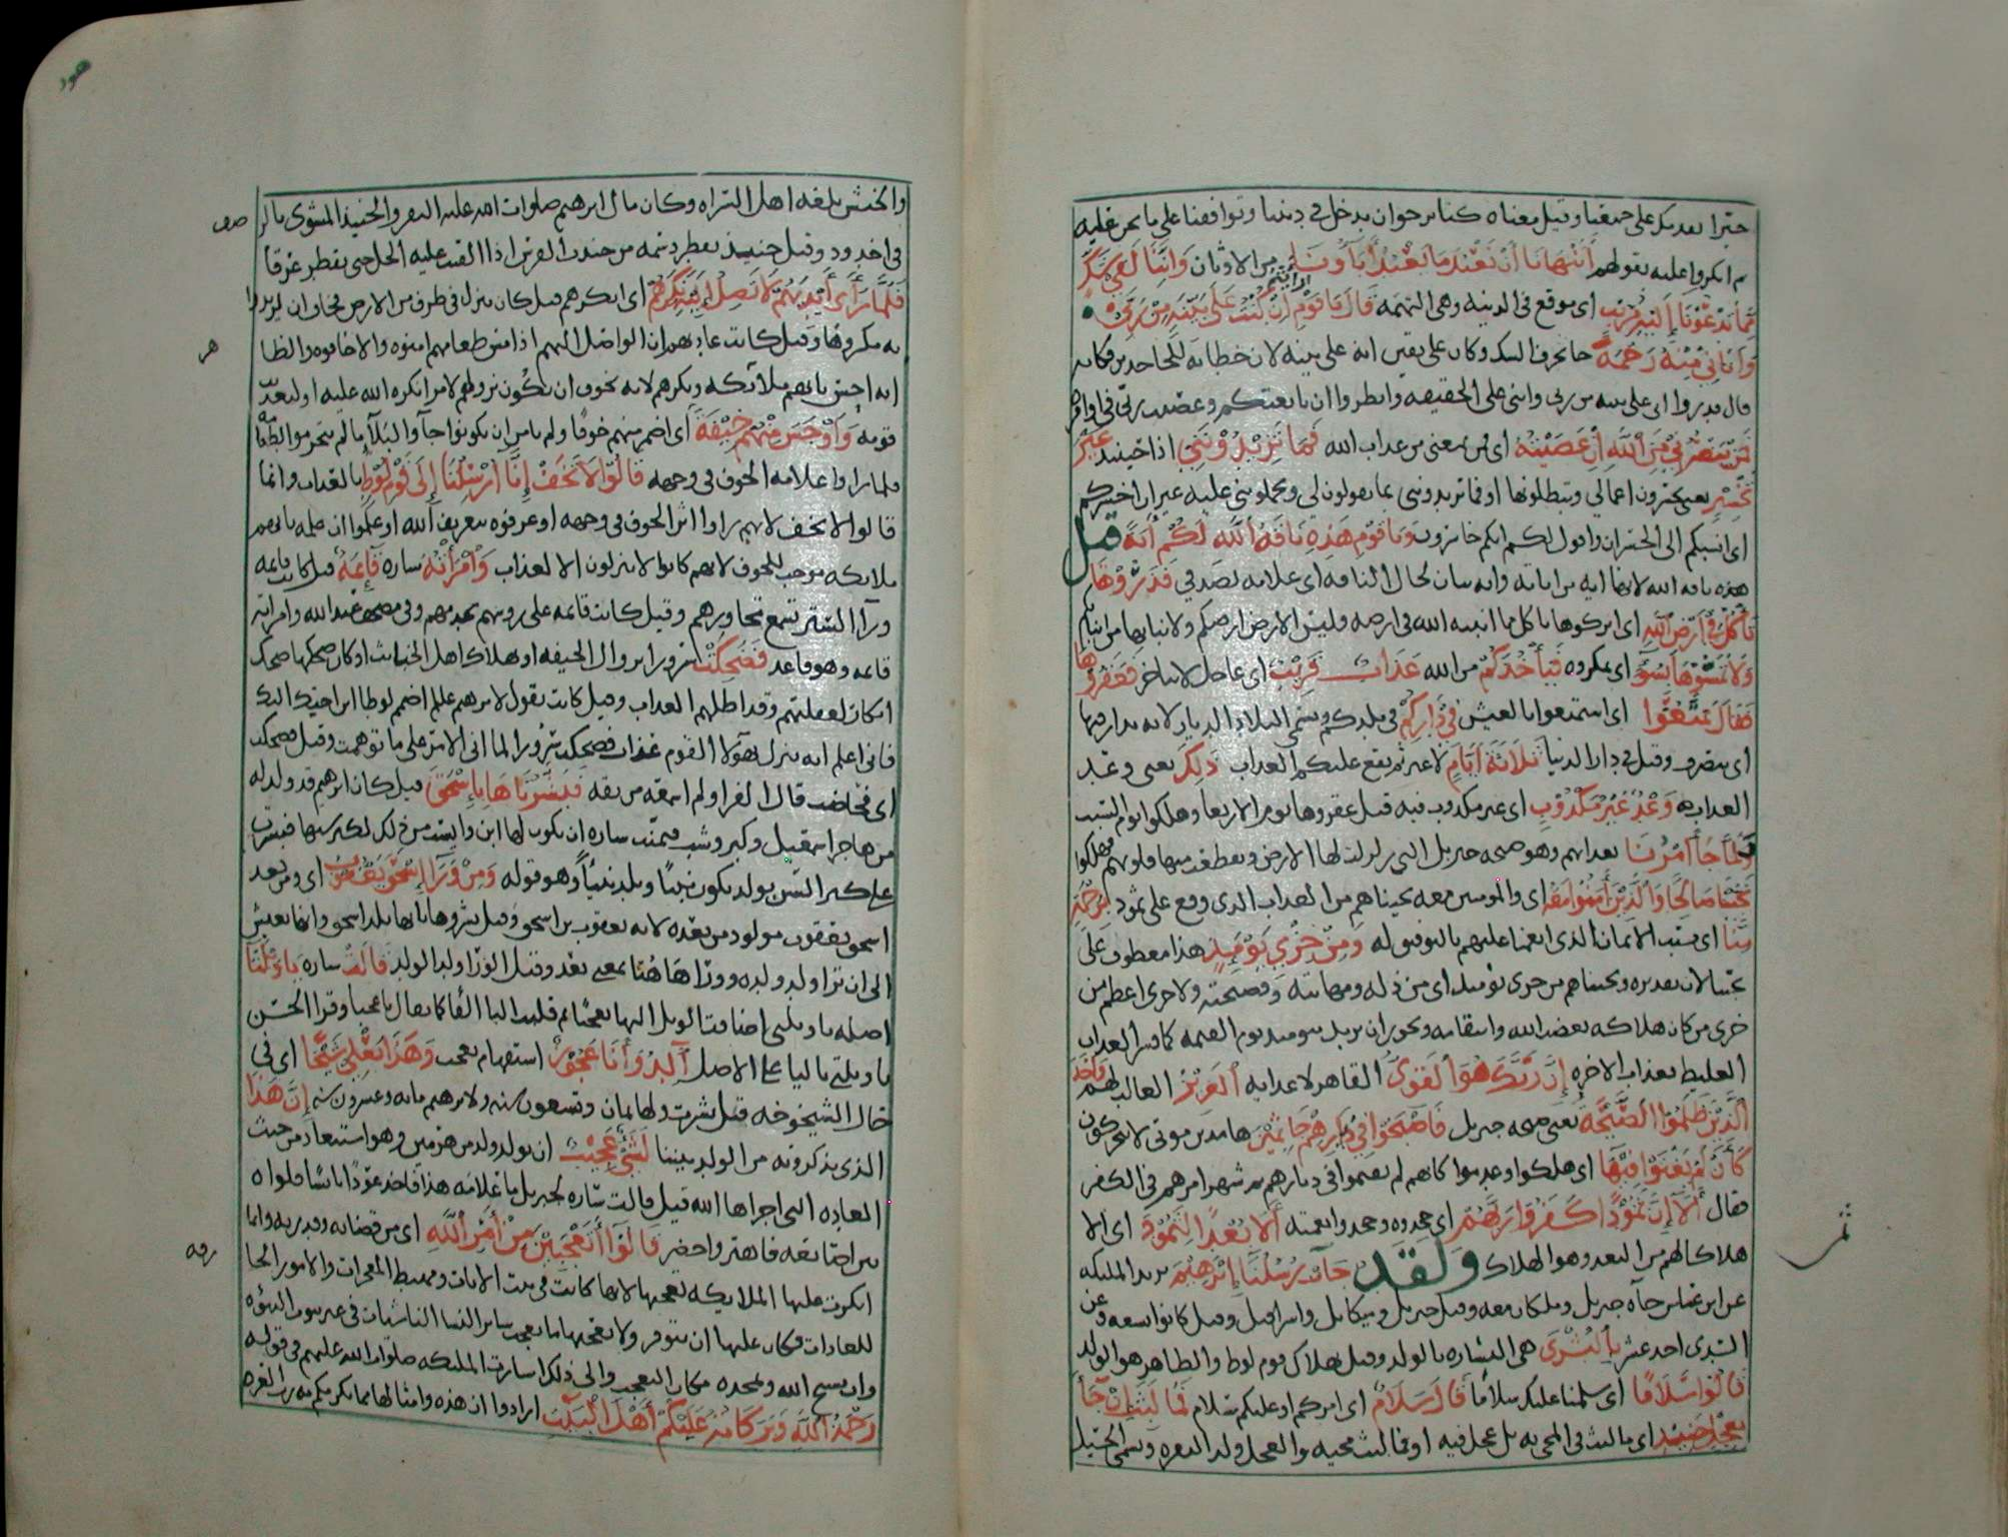 خيرا بعدمكر على جميعنا وقيل معناه كنا نرجوا ان تدخل في ديننا وتوافقنا على ما نحن عليه
ثم انكروا عليه بقولهم أَتَنْهَانَا أَنْ نَعْبُدَ مَا يَعْبُدُ آبَاؤُنَا من الاوثان وَإِنَّنَا لَفِي شَكٍّ
مِمَّا تَدْعُونَا إِلَيْهِ مُرِيبٍ اي موقع في الريبه وهي التهمه قَالَ يَا قَوْمِ أَرَأَيْتُمْ إِنْ كُنْتُ عَلَى بَيِّنَةٍ مِنْ رَبِّي
وَآتَانِي مِنْهُ رَحْمَةً جا بحرف الشك وكان على يقين انه على بينه لان خطابه للجاحدين فكانه
قال قدروا اني على بينه من ربي وانني على الحقيقه وانظروا ان تابعتكم وعصيت ربي في اوامره
فَمَنْ يَنْصُرُنِي مِنَ اللَّهِ إِنْ عَصَيْتُهُ اي فمن يمنعني من عذاب الله فَمَا تَزِيدُونَنِي اذا حينئذ غَيْرَ
تَخْسِيرٍ يعني تخسرون اعمالي وتبطلونها او فما تزيدونني بما تقولون لي وتحملونني عليه غير ان اخسركم
اي انسبكم الى الخسران واقول لكم انكم خاسرون وَيَا قَوْمِ هَذِهِ نَاقَةُ اللَّهِ لَكُمْ آيَةً قيل
هذه ناقه الله لانها ايه من اياته وايه بيان لحال الناقه اي علامه لصدقي فَذَرُوهَا
تَأْكُلْ فِي أَرْضِ اللَّهِ اي اتركوها تاكل مما انبته الله في ارضه وليس الارض ارضكم ولا نباتها من انباتكم
وَلَا تَمَسُّوهَا بِسُوءٍ اي بمكروه فَيَأْخُذَكُمْ من الله عَذَابٌ قَرِيبٌ اي عاجل لا يتاخر فَعَقَرُوهَا
فَقَالَ تَمَتَّعُوا اي استمتعوا بالعيش فِي دَارِكُمْ في بلدكم وتسمى البلاد الديار لانه يدار فيها
اي يتصرف وقيل في دار الدنيا ثَلَاثَةَ أَيَّامٍ لا غير ثم يقع عليكم العذاب ذَلِكَ يعني وعد
العذاب وَعْدٌ غَيْرُ مَكْذُوبٍ اي غير مكذوب فيه قيل عقروها يوم الاربعا وهلكوا يوم السبت
فَلَمَّا جَاءَ أَمْرُنَا بعذابهم وهو صيحه جبريل التي زلزلت لها الارض وتقطعت منها قلوبهم فهلكوا
نَجَّيْنَا صَالِحًا وَالَّذِينَ آمَنُوا مَعَهُ اي والمومنين معه نجيناهم من العذاب الذي وقع على ثمود بِرَحْمَةٍ
مِنَّا اي بسبب الايمان الذي انعمنا عليهم بالتوفيق له وَمِنْ خِزْيِ يَوْمِئِذٍ هذا معطوف على
نجينا لان تقديره ونجيناهم من خزي يوميذ اي من ذله ومهانته وفضيحته ولا خزي اعظم من
خزي من كان هلاكه بغضب الله وانتقامه ويجوز ان يريد بيوميذ يوم القيمه كما فسر العذاب
الغليظ بعذاب الاخره إِنَّ رَبَّكَ هُوَ الْقَوِيُّ القاهر لاعدايه الْعَزِيزُ الغالب لهم وَأَخَذَ
الَّذِينَ ظَلَمُوا الصَّيْحَةُ يعني صيحه جبريل فَأَصْبَحُوا فِي دِيَارِهِمْ جَاثِمِينَ هامدين موتى لا يتحركون
كَأَنْ لَمْ يَغْنَوْا فِيهَا اي هلكوا وعدموا كانهم لم يقيموا في ديارهم ثم شهر امرهم في الكفر
فقال أَلَا إِنَّ ثَمُودَ كَفَرُوا رَبَّهُمْ اي جحدوه وجحدوا نعمته أَلَا بُعْدًا لِثَمُودَ اي الا
هلاكا لهم من البعد وهو الهلاك وَلَقَدْ جَاءَتْ رُسُلُنَا إِبْرَاهِيمَ يريد المليكه
عن ابن عباس جاه جبريل وملكان معه وقيل جبريل وميكايل واسرافيل وقيل كانوا تسعه وعن
السدي احد عشر بِالْبُشْرَى هي البشاره بالولد وقيل بهلاك قوم لوط والظاهر هو الولد
قَالُوا سَلَامًا اي سلمنا عليك سلاما قَالَ سَلَامٌ اي امركم او عليكم سلام فَمَا لَبِثَ أَنْ جَاءَ
بِعِجْلٍ حَنِيذٍ اي ما لبث في المجي به بل عجل فيه او فما لبث مجيه والعجل ولد البقره ويسمى الحسيل
ثمر
هود
والخبش بلغه اهل السراه وكان مال ابرهيم صلوات الله عليه البقر والحنيذ المشوي بالر
صف
في اخدود وقيل حنيذ يقطر دسمه من حنذت الفرس اذا القيت عليه الجل حتى يقطر عرقا
فَلَمَّا رَأَى أَيْدِيَهُمْ لَا تَصِلُ إِلَيْهِ نَكِرَهُمْ اي انكرهم قيل كان ينزل في طرف من الارض فخاف ان يريدوا
به مكروها وقيل كانت عادتهم ان الواصل اليهم اذا مس طعامهم امنوه والا خافوه والظا
هر
انه احس بانهم ملائكه ونكرهم لانه تخوف ان تكون نزولهم لامر انكره الله عليه او لتعذيب
قومه وَأَوْجَسَ مِنْهُمْ خِيفَةً اي اضمر منهم خوفا ولم يامن ان يكونوا جاؤا لبلاء لما لم يتحرموا بطعامه
فلما راوا علامه الخوف في وجهه قَالُوا لَا تَخَفْ إِنَّا أُرْسِلْنَا إِلَى قَوْمِ لُوطٍ بالعذاب وانما
قالوا لا تخف لانهم راوا اثر الخوف في وجهه او عرفوه بتعريف الله او علموا ان علمه بانهم
ملائكه موجب للخوف لانهم كانوا لا ينزلون الا لعذاب وَامْرَأَتُهُ ساره قَائِمَةٌ قيل كانت قايمه
ورا الستر تسمع تحاورهم وقيل كانت قايمه على روسهم تخدمهم وفي مصحف عبد الله وامراته
قايمه وهو قاعد فَضَحِكَتْ سرورا بزوال الخيفه او بهلاك اهل الخبايث او كان ضحكها ضحك
انكار لغفلتهم وقد اظلهم العذاب وقيل كانت تقول لابرهيم عليلم اضمم لوطا ابن اخيك اليك
فاني اعلم انه ينزل بهولا القوم عذاب فضحكت سرورا لما اتى الامر على ما توهمت وقيل فضحكت
اي فحاضت قال الفرا ولم اسمعه من ثقه فَبَشَّرْنَاهَا بِإِسْحَاقَ قيل كان ابرهيم قد ولد له
من هاجر اسمعيل وكبر وشب فتمنت ساره ان يكون لها ابن وايست من ذلك لكبر سنها فبشرت
على كبر السن بولد يكون نبيا ويلد نبيا وهو قوله وَمِنْ وَرَاءِ إِسْحَاقَ يَعْقُوبَ اي ومن بعد
اسحق يعقوب مولود من بعده لانه يعقوب بن اسحق وقيل بشروها بانها تلد اسحق وانها تعيش
الى ان ترا ولد ولده وورا هاهنا بمعنى بعد وقيل الورا ولد الولد قَالَتْ ساره يَا وَيْلَتَا
اصله يا ويلتي اضافت الويل اليها تعجبا ثم قلبت اليا الفا كما يقال يا عجبا وقرا الحسن
يا ويلتي باليا على الاصل أَأَلِدُ وَأَنَا عَجُوزٌ استفهام تعجب وَهَذَا بَعْلِي شَيْخًا اي في
حال الشيخوخه قيل بشرت ولها ثمان وتسعون سنه ولابرهيم مايه وعشرون سنه إِنَّ هَذَا
الذي يذكرونه من الولد بيننا لَشَيْءٌ عَجِيبٌ ان يولد ولد من هرمين وهو استبعاد من حيث
العاده التي اجراها الله قيل قالت ساره لجبريل ما علامه هذا فاخذ عودا يابسا فلواه
بين اصابعه فاهتز واخضر قَالُوا أَتَعْجَبِينَ مِنْ أَمْرِ اللَّهِ اي من قضائه وقدرته وانما
انكرت عليها الملايكه تعجبها لانها كانت في بيت الايات ومهبط المعجزات والامور الخا
رقه
للعادات فكان عليها ان تتوقر ولا تعجبها ما يعجب ساير النسا الناشيات في غير بيوت النبوه
وان تسبح الله وتمجده مكان التعجب والى ذلك اشارت المليكه صلوات الله عليهم في قوله
رَحْمَةُ اللَّهِ وَبَرَكَاتُهُ عَلَيْكُمْ أَهْلَ الْبَيْتِ ارادوا ان هذه وامثالها مما يكرمكم به رب العزه